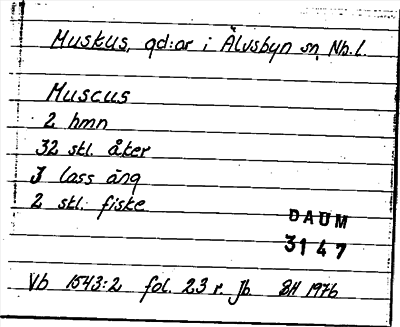 Muskus, gd:ar i Älvsbyn sn, Nb. l.
Muscus
2 hmn
32 skl. åker
3 lass äng
2 skl. fiske
DAUM
3147
Vb 1543:2 fol. 23 r. Jb EH 1976